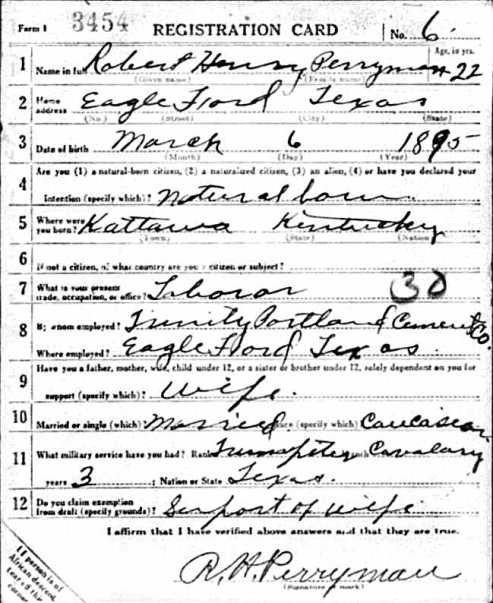 Form 1 3454 REGISTRATION CARD No. 6
Age, in yrs.
1 Name in full Robert Henry Perryman 22
(Given name) (Family name)
2 Home address Eagle Ford Texas
(No.) (Street) (City) (State)
3 Date of birth March 6 1895
(Month) (Day) (Year)
Are you (1) a natural-born citizen, (2) a naturalized citizen, (3) an alien, (4) or have you declared your
4 intention (specify which)? Natural born.
5 Where were you born? Kattawa Kentucky
(Town) (State) (Nation)
6 If not a citizen, of what country are you a citizen or subject?
7 What is your present trade, occupation, or office? Laboror 30
8 By whom employed? Trinity Portland Cement Co.
Where employed? Eagle Ford Texas.
9 Have you a father, mother, wife, child under 12, or a sister or brother under 12, solely dependent on you for
support (specify which)? Wife.
10 Married or single (which)? Married Race (specify which)? Caucasian
11 What military service have you had? Rank Trumpeter branch Cavalary
years 3 ; Nation or State Texas.
12 Do you claim exemption from draft (specify grounds)? Serport of wife.
I affirm that I have verified above answers and that they are true.
R. H. Perryman
(Signature or mark)
If person is of
African descent,
tear off this
corner